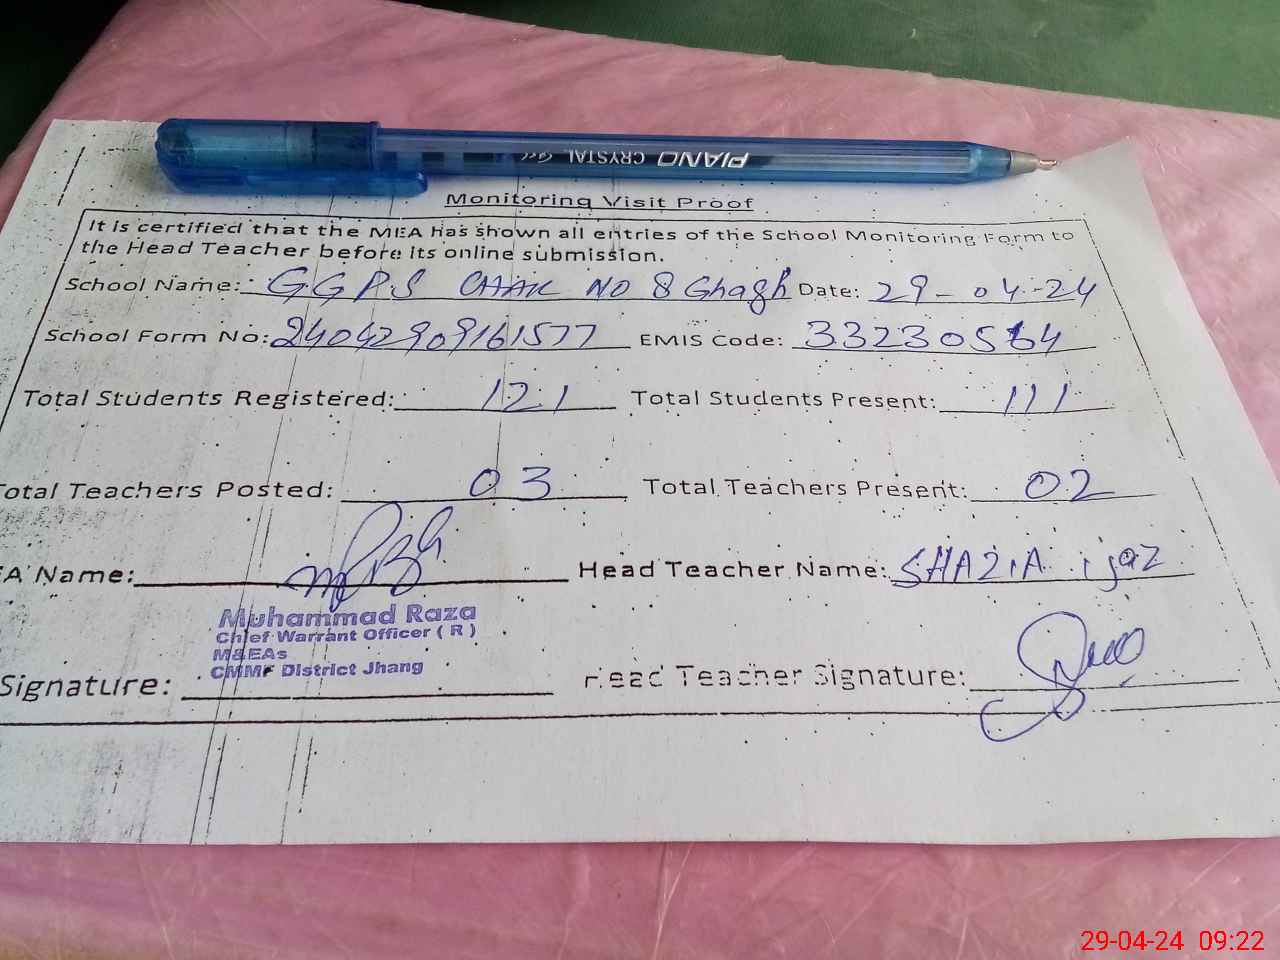 PIANO CRYSTAL Gel
Monitoring Visit Proof
It is certified that the MEA has shown all entries of the School Monitoring Form to
the Head Teacher before its online submission.
School Name: GGPS CHAK NO 8 Ghagh Date: 29-04-24
School Form No: 24042909161577 EMIS Code: 33230564
Total Students Registered: 121 Total Students Present: 111
Total Teachers Posted: 03 Total Teachers Present: 02
EA Name: Head Teacher Name: SHAZIA ijaz
Muhammad Raza
Chief Warrant Officer ( R )
M&EAs
CMMF District Jhang
Signature: Head Teacher Signature:
29-04-24 09:22